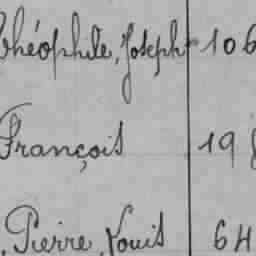 Théophile, Joseph 106
François 19
Pierre, Louis 64